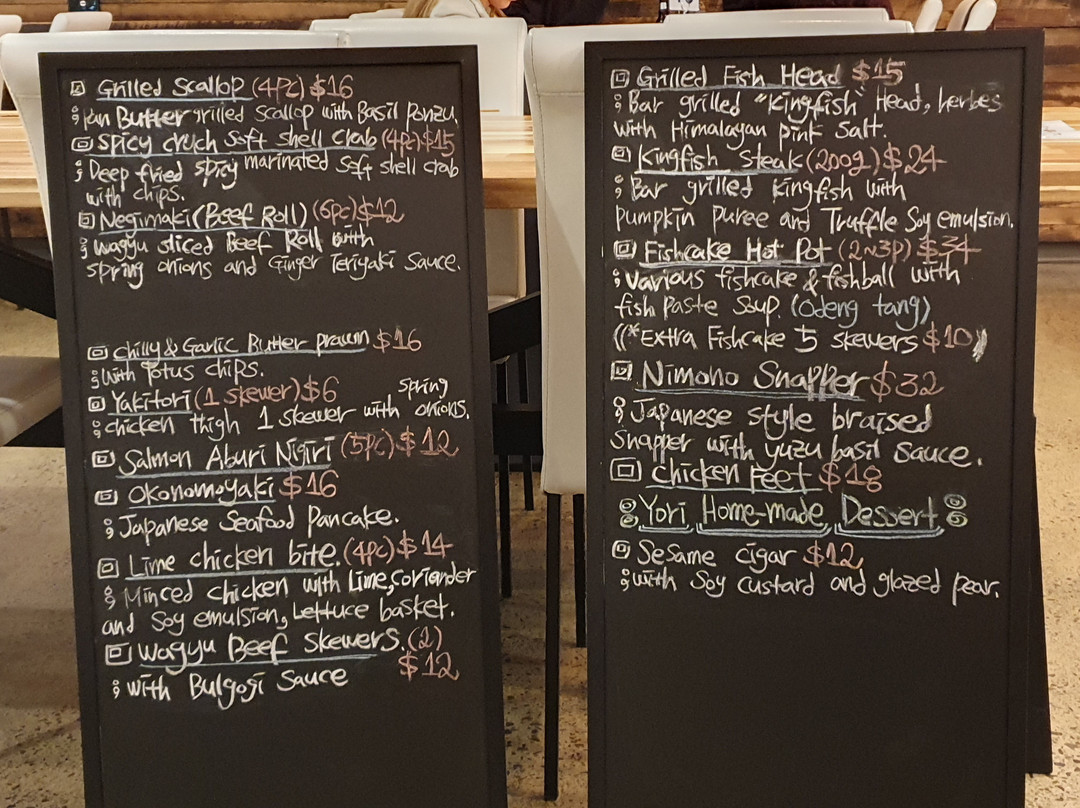 Grilled Scallop (4pc) $16
Pan Butter grilled Scallop with Basil Ponzu.
Spicy cruch Soft shell crab (4pc) $15
Deep fried spicy marinated Soft shell crab
with chips.
Negimaki (Beef Roll) (6pc) $12
Wagyu sliced Beef Roll with
spring onions and Ginger Teriyaki Sauce.
chilly & Garlic Butter prawn $16
with Potus chips.
Yakitori (1 skewer) $6
chicken thigh 1 skewer with spring onions.
Salmon Aburi Nigiri (5pc) $12
Okonomoyaki $16
Japanese Seafood Pancake.
Lime chicken bite. (4pc) $14
Minced chicken with Lime, coriander
and Soy emulsion, Lettuce basket.
Wagyu Beef Skewers. (2)
$12
with Bulgogi Sauce
Grilled Fish Head $15
Bar grilled "Kingfish" Head, herbes
with Himalayan pink salt.
Kingfish Steak (200g) $24
Bar grilled Kingfish with
pumpkin puree and Truffle Soy emulsion.
Fishcake Hot Pot (2~3p) $34
Various fishcake & fishball with
fish paste Soup. (Odeng tang)
((*Extra Fishcake 5 skewers $10))
Nimono Snapper $32
Japanese style braised
Snapper with yuzu basil Sauce.
Chicken Feet $18
Yori Home-made Dessert
Sesame cigar $12
with Soy custard and glazed pear.